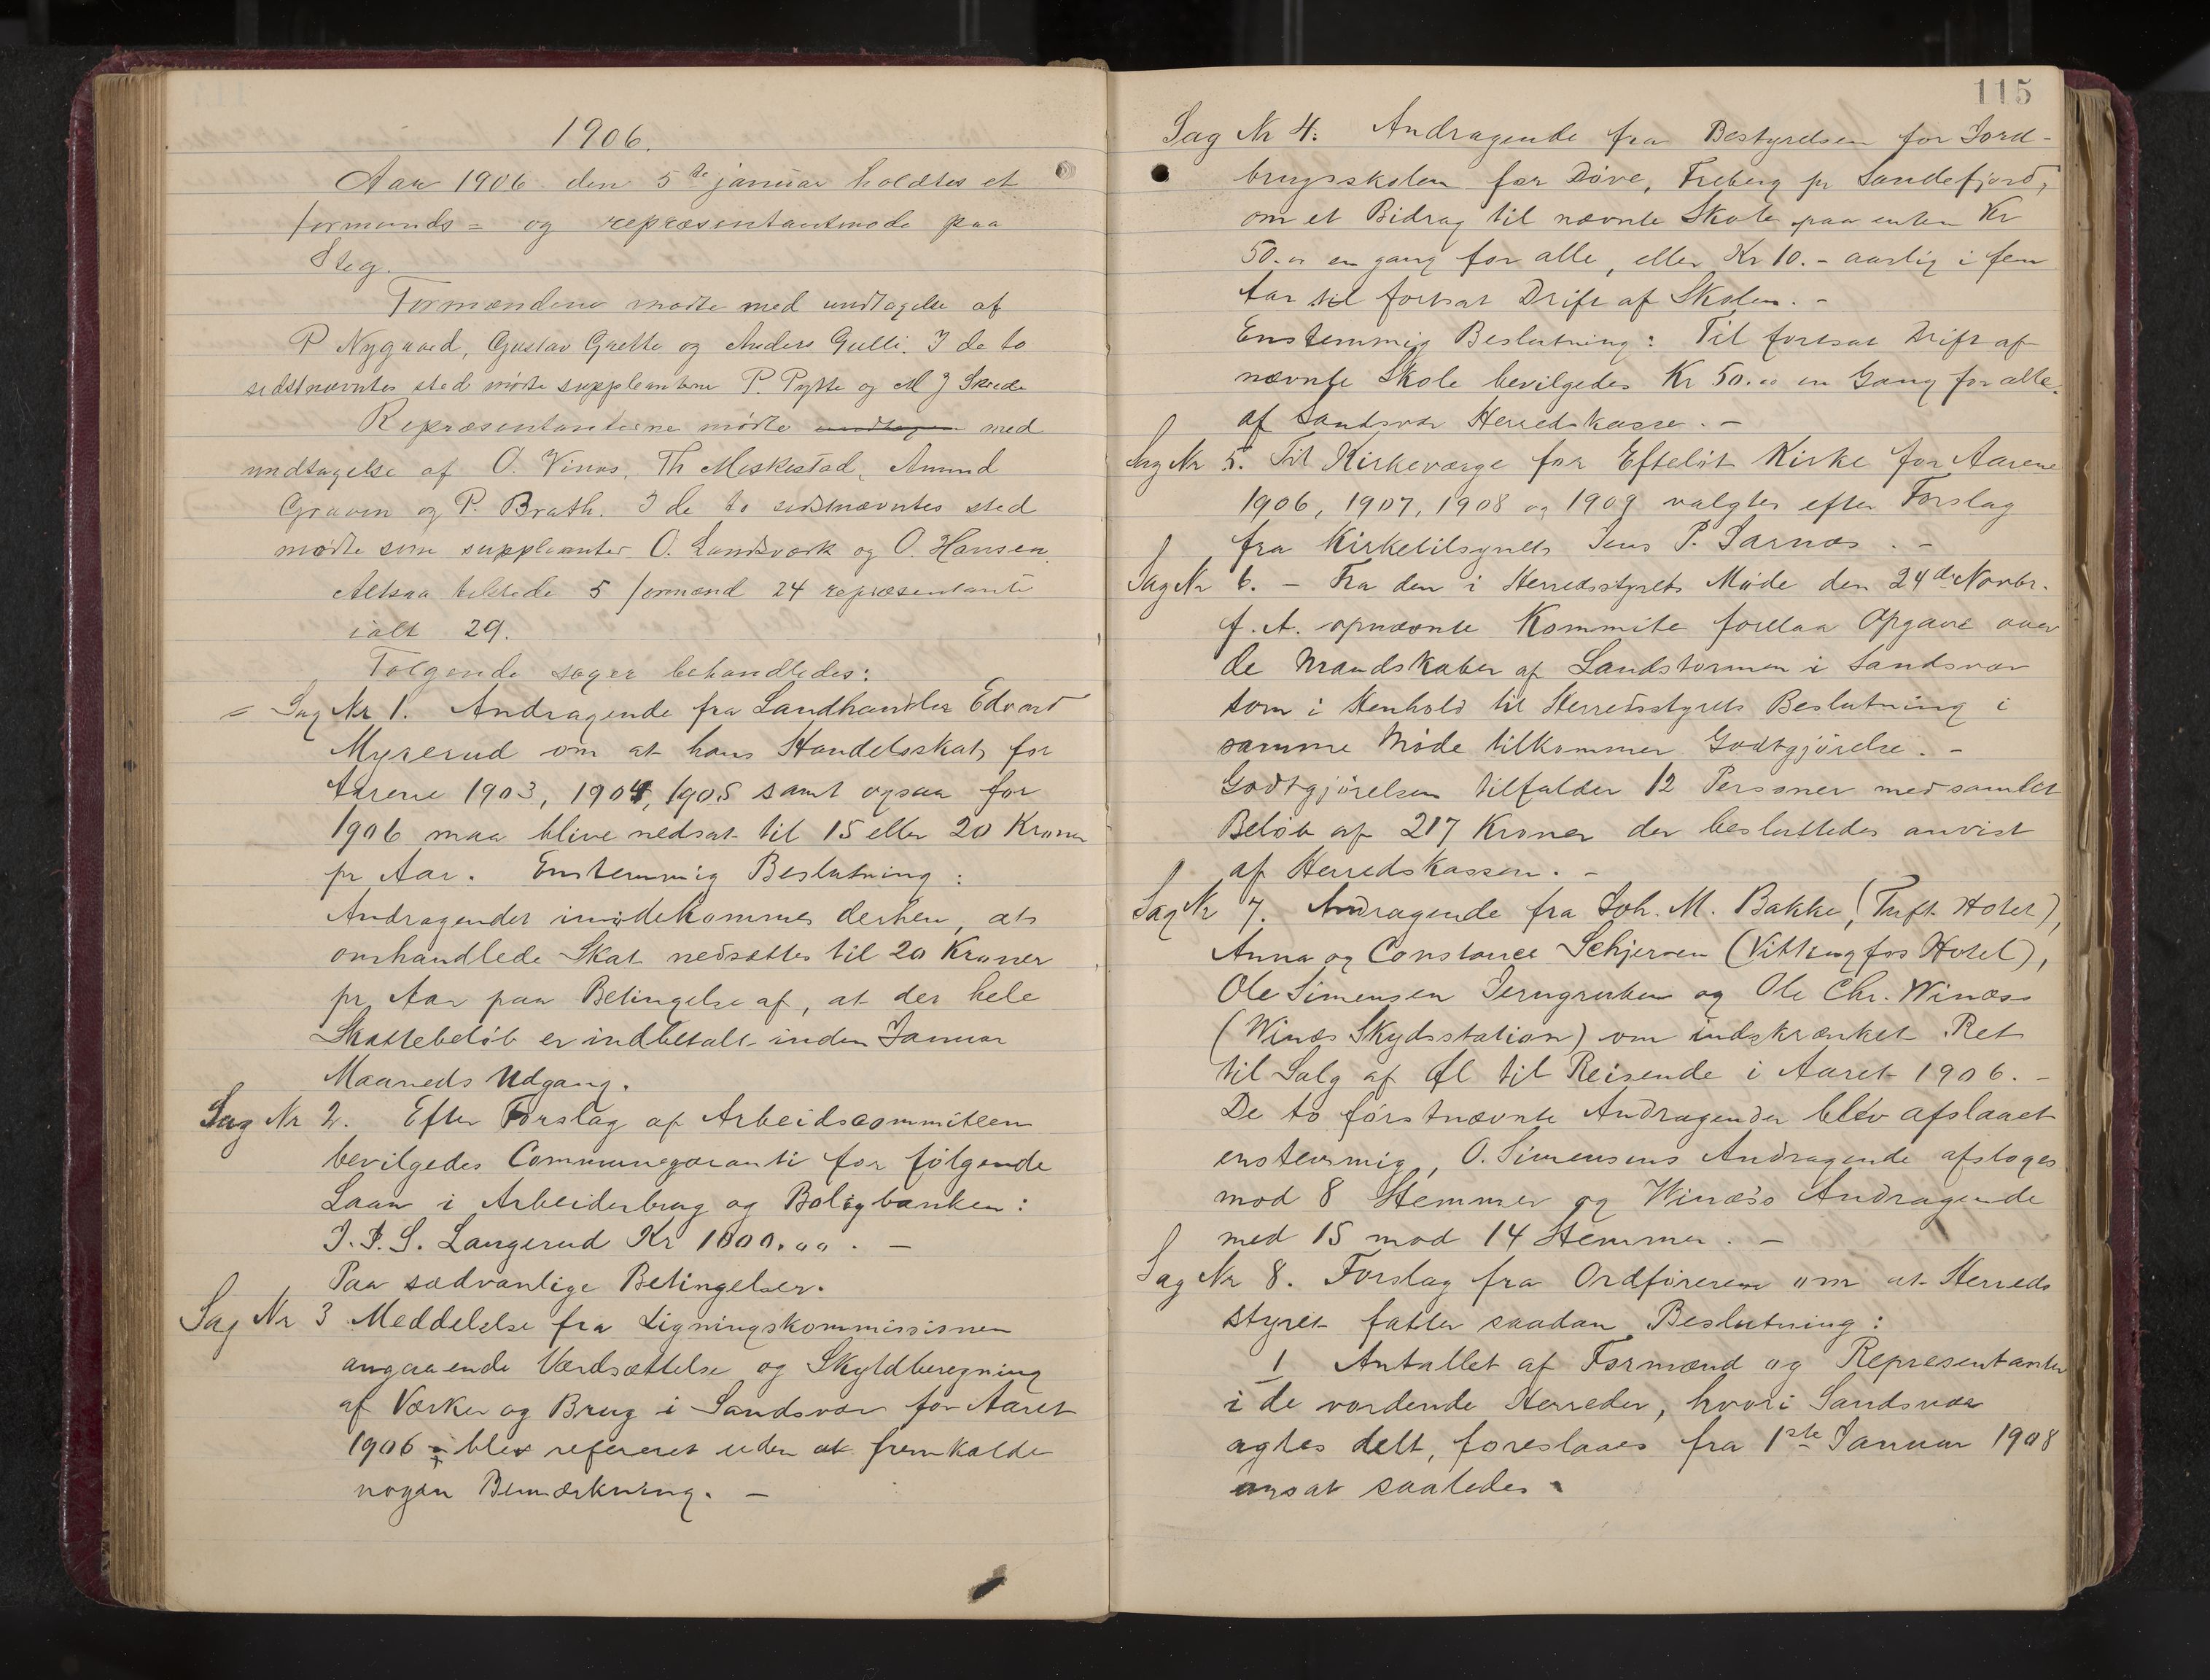 1906.
Aar 1906 den 5te januar holdtes et
formands- og repræsentantmøde paa
Steg.
Formændene mødte med undtagelse af
P Nygaard, Gustav Grette og Anders Gulli. I de to
sidstnævntes sted mødte suppleantene P. Pytte og M J Skrede
Repræsentanterne mødte med
undtagelse af O. Vinæs, Th Meskestad, Amund
Graven og P. Brath. I de to sidstnævntes sted
mødte som suppleanter O. Landsværk og O. Hansen.
Altsaa tilstede 5 formænd 24 repræsentanter
ialt 29.
Følgende sager behandledes:
= Sag Nr 1. Andragende fra Landhandler Edvard
Myrerud om at hans Handelsskat for
Aarene 1903, 1904, 1905 samt ogsaa for
1906 maa blive nedsat til 15 eller 20 Kroner
pr Aar. Enstemmig Beslutning:
Andragendet imødekommes derhen, at
omhandlede Skat nedsættes til 20 Kroner
pr Aar paa Betingelse af, at det hele
Skattebeløb er indbetalt inden Januar
Maaneds Udgang.
Sag Nr 2. Efter Forslag af Arbeidscommiteen
bevilgedes Communegaranti for følgende
Laan i Arbeiderbrug og Boligbanken:
J. P. S. Langerud Kr 1000.00. —
Paa sædvanlige Betingelser.
Sag Nr 3 Meddelelse fra Ligningskommissionen
angaaende Værdsættelse og Skyldberegning
af Værker og Brug i Sandsvær for Aaret
1906 blev refereret uden at fremkalde
nogen Bemærkning. —
115
Sag Nr 4. Andragende fra Bestyrelsen for Jord-
brugsskolen for Døve, Freberg pr Sandefjord,
om et Bidrag til nævnte Skole paa enten Kr
50.00 en gang for alle, eller Kr 10.- aarlig i fem
Aar til fortsat Drift af Skolen. -
Enstemmig Beslutning: Til fortsat Drift af
nævnte Skole bevilgedes Kr 50.00 en Gang for alle.
af Sandsvær Herredskasse. —
Sag Nr 5. Til Kirkeværge for Efteløt Kirke for Aarene
1906, 1907, 1908 og 1909 valgtes efter Forslag
fra Kirketilsynets Jens P. Sarnæs. -
Sag Nr 6. - Fra den i Herredsstyrets Møde den 24de Novbr.
f. A. opnævnte Kommite forelaa Opgave over
de Mandskaber af Landstormen i Sandsvær
som i Henhold til Herredsstyrets Beslutning i
samme Møde tilkommer Godtgjørelse. -
Godtgjørelsen tilfalder 12 Personer med samlet
Beløb af 217 Kroner der besluttedes anvist
af Herredskassen. -
Sag Nr 7. Andragende fra Joh. M. Bakke, (Tuft Hotel),
Anna og Constance Schjerven (Vittingfos Hotel),
Ole Simensen Jerngruben og Ole Chr. Winæs
(Winæs Skydsstation) om indskrænket Ret
til Salg af Øl til Reisende i Aaret 1906. -
De to førstnævnte Andragender blev afslaaet
enstemmig, O. Simensens Andragende afsloges
mod 8 Stemmer og Winæs's Andragende
med 15 mod 14 Stemmer. —
Sag Nr 8. Forslag fra Ordføreren om at Herreds
styret fatter saadan Beslutning:
1 Antallet af Formænd og Representanter
i de vordende Herreder, hvori Sandsvær
agtes delt, foreslaaes fra 1ste Januar 1908
ansat saaledes.